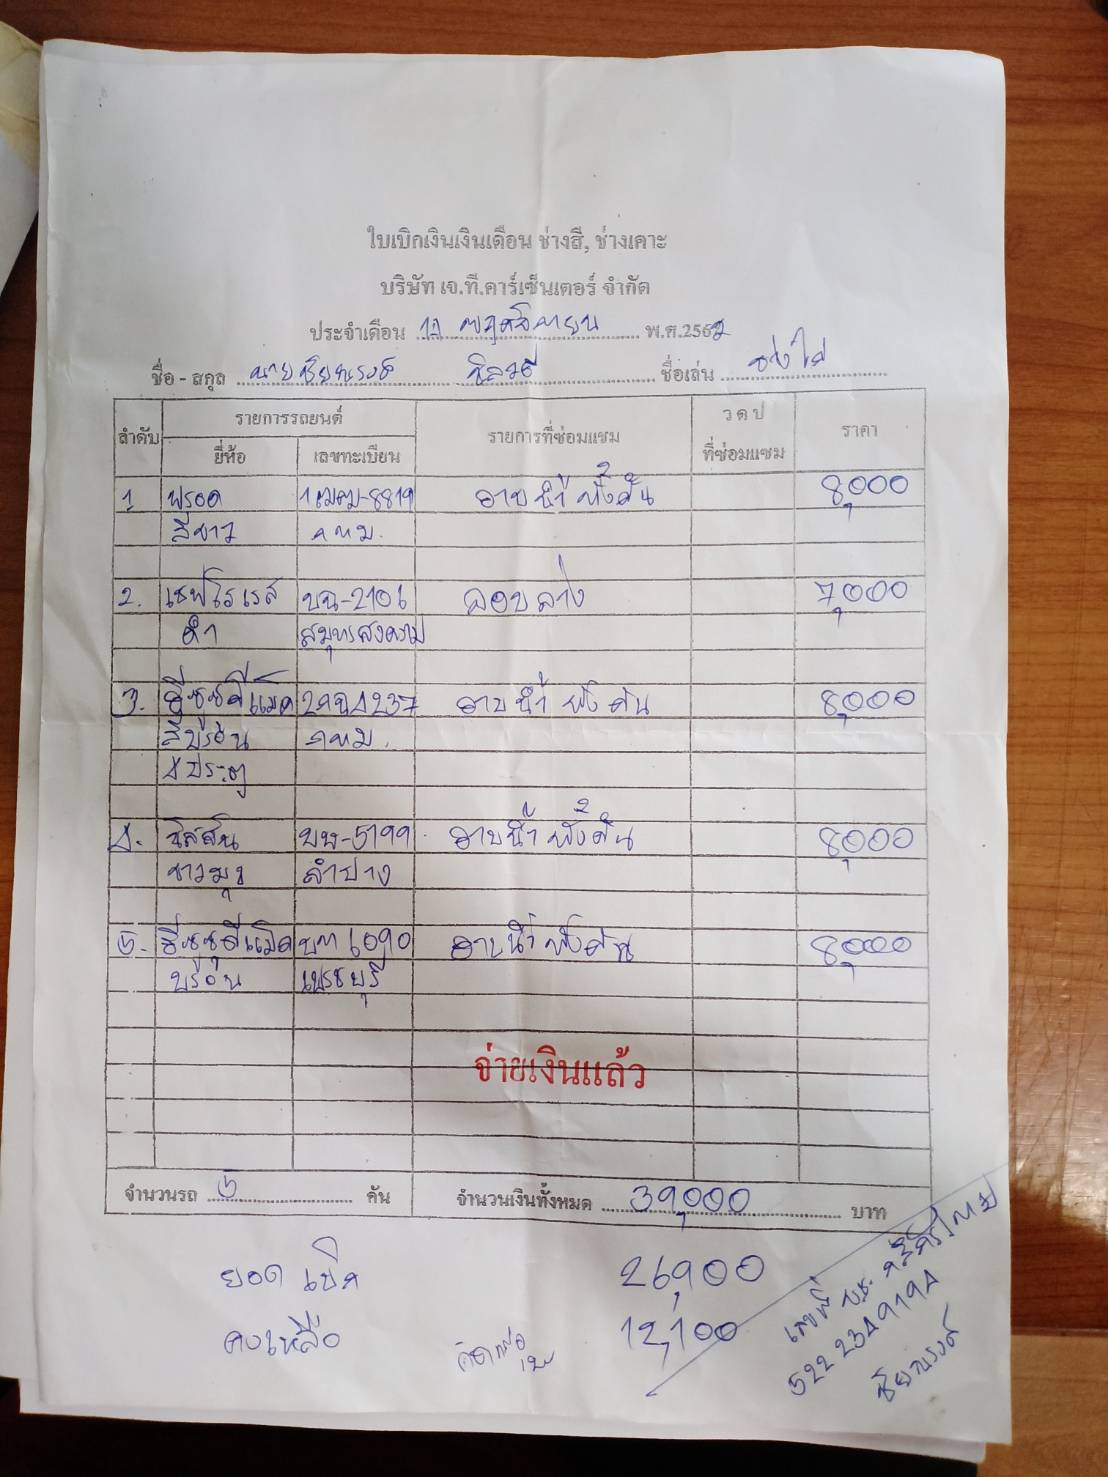 ใบเบิกเงินเงินเดือน ช่างสี, ช่างเคาะ
บริษัท เจ.ที.คาร์เซ็นเตอร์ จำกัด
ประจำเดือน พฤศจิกายน พ.ศ.2562
ชื่อ - สกุล นายชัยณรงค์ ชื่อเล่น ช่างไก่
ลำดับ รายการรถยนต์ รายการที่ซ่อมแซม ว ด ป ที่ซ่อมแซม ราคา
ยี่ห้อ เลขทะเบียน
1 ฟรอด 1ฒฒ-8819 อาบน้ำ ทั้งคัน 8,000
สีขาว กทม.
2. เชฟโรเรส บฉ-2106 ลอบลาง 7,000
ดำ สมุทรสงคราม
3. อีซูซุดีแมค 2กฉ4237 อาบน้ำ ทั้งคัน 8,000
สีบรอน กทม.
4ประตู
4. นิสสัน บพ-5199 อาบน้ำ ทั้งคัน 8,000
ขาวมุข ลำปาง
5. อีซูซุดีแม็ค บท 6090 อาบน้ำ ทั้งคัน 8,000
บรอน เพรชบุรี
จ่ายเงินแล้ว
จำนวนรถ 5 คัน จำนวนเงินทั้งหมด 39,000 บาท
ยอดเบิก 26,900
คงเหลือ 12,100
เลขที่ บช. กสิกรไทย
522 2349194
ชัยณรงค์